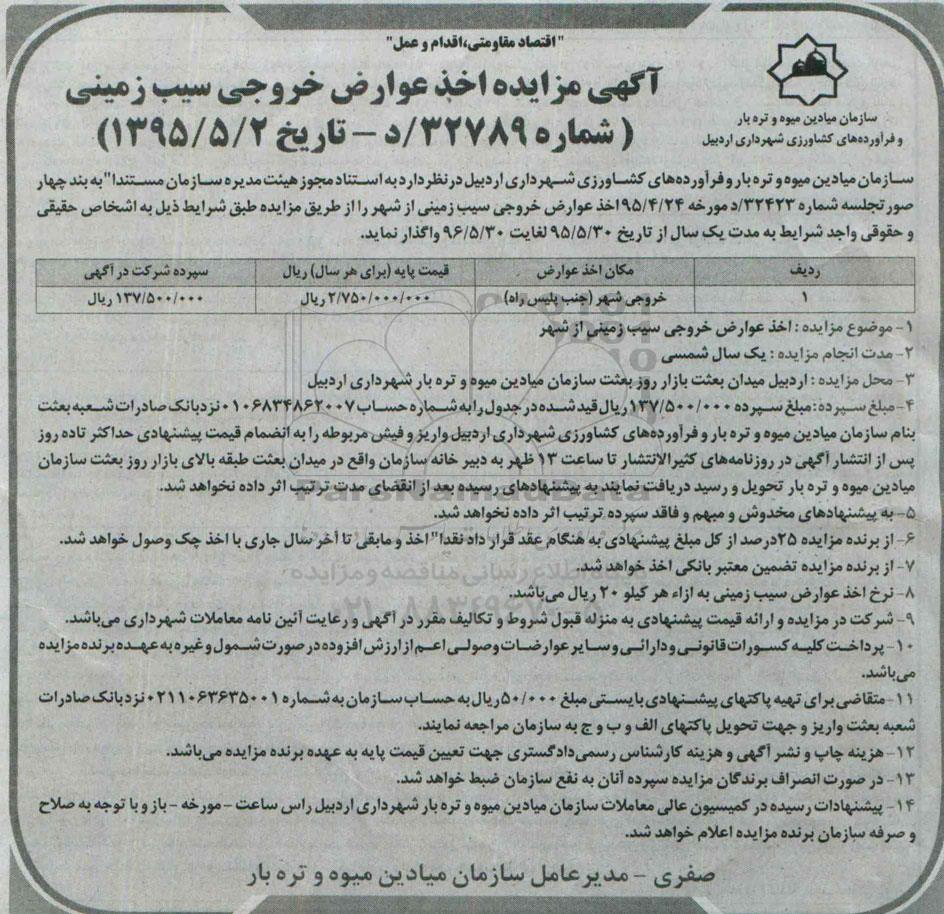 "اقتصاد مقاومتی،اقدام و عمل"
آگهی مزایده اخذ عوارض خروجی سیب زمینی
(شماره ۳۲۷۸۹/د – تاریخ ۱۳۹۵/۵/۲)
سازمان میادین میوه و تره بار
و فرآورده‌های کشاورزی شهرداری اردبیل
سازمان میادین میوه و تره بار و فرآورده‌های کشاورزی شهرداری اردبیل در نظر دارد به استناد مجوز هیئت مدیره سازمان مستندا" به بند چهار
صورتجلسه شماره ۳۲۴۲۳/د مورخه ۹۵/۴/۲۴ اخذ عوارض خروجی سیب زمینی از شهر را از طریق مزایده طبق شرایط ذیل به اشخاص حقیقی
و حقوقی واجد شرایط به مدت یک سال از تاریخ ۹۵/۵/۳۰ لغایت ۹۶/۵/۳۰ واگذار نماید.
ردیف مکان اخذ عوارض قیمت پایه (برای هر سال) ریال سپرده شرکت در آگهی
۱ خروجی شهر (جنب پلیس راه) ۲/۷۵۰/۰۰۰/۰۰۰ ریال ۱۳۷/۵۰۰/۰۰۰ ریال
۱- موضوع مزایده : اخذ عوارض خروجی سیب زمینی از شهر
۲- مدت انجام مزایده : یک سال شمسی
۳- محل مزایده : اردبیل میدان بعثت بازار روز بعثت سازمان میادین میوه و تره بار شهرداری اردبیل
۴- مبلغ سپرده: مبلغ سپرده ۱۳۷/۵۰۰/۰۰۰ ریال قید شده در جدول را به شماره حساب ۰۱۰۶۸۳۴۸۶۲۰۰۷ نزد بانک صادرات شعبه بعثت
بنام سازمان میادین میوه و تره بار و فرآورده‌های کشاورزی شهرداری اردبیل واریز و فیش مربوطه را به انضمام قیمت پیشنهادی حداکثر تا ده روز
پس از انتشار آگهی در روزنامه‌های کثیرالانتشار تا ساعت ۱۳ ظهر به دبیر خانه سازمان واقع در میدان بعثت طبقه بالای بازار روز بعثت سازمان
میادین میوه و تره بار تحویل و رسید دریافت نمایند به پیشنهادهای رسیده بعد از انقضای مدت ترتیب اثر داده نخواهد شد.
۵- به پیشنهادهای مخدوش و مبهم و فاقد سپرده ترتیب اثر داده نخواهد شد.
۶- از برنده مزایده ۲۵درصد از کل مبلغ پیشنهادی به هنگام عقد قرار داد نقدا" اخذ و مابقی تا آخر سال جاری با اخذ چک وصول خواهد شد.
۷- از برنده مزایده تضمین معتبر بانکی اخذ خواهد شد.
۸- نرخ اخذ عوارض سیب زمینی به ازاء هر کیلو ۲۰ ریال می‌باشد.
۹- شرکت در مزایده و ارائه قیمت پیشنهادی به منزله قبول شروط و تکالیف مقرر در آگهی و رعایت آئین نامه معاملات شهرداری می‌باشد.
۱۰- پرداخت کلیه کسورات قانونی و دارائی و سایر عوارضات وصولی اعم از ارزش افزوده در صورت شمول و غیره به عهده برنده مزایده
می‌باشد.
۱۱- متقاضی برای تهیه پاکتهای پیشنهادی بایستی مبلغ ۵۰/۰۰۰ ریال به حساب سازمان به شماره ۰۲۱۱۰۶۳۶۳۵۰۰۱ نزد بانک صادرات
شعبه بعثت واریز و جهت تحویل پاکتهای الف و ب و ج به سازمان مراجعه نمایند.
۱۲- هزینه چاپ و نشر آگهی و هزینه کارشناس رسمی‌دادگستری جهت تعیین قیمت پایه به عهده برنده مزایده می‌باشد.
۱۳- در صورت انصراف برندگان مزایده سپرده آنان به نفع سازمان ضبط خواهد شد.
۱۴- پیشنهادات رسیده در کمیسیون عالی معاملات سازمان میادین میوه و تره بار شهرداری اردبیل راس ساعت – مورخه – باز و با توجه به صلاح
و صرفه سازمان برنده مزایده اعلام خواهد شد.
صفری – مدیرعامل سازمان میادین میوه و تره بار
ParsNamadData
پایگاه اطلاع رسانی مناقصه و مزایده
۰۲۱-۸۸۳۴۹۶۷۰-۵